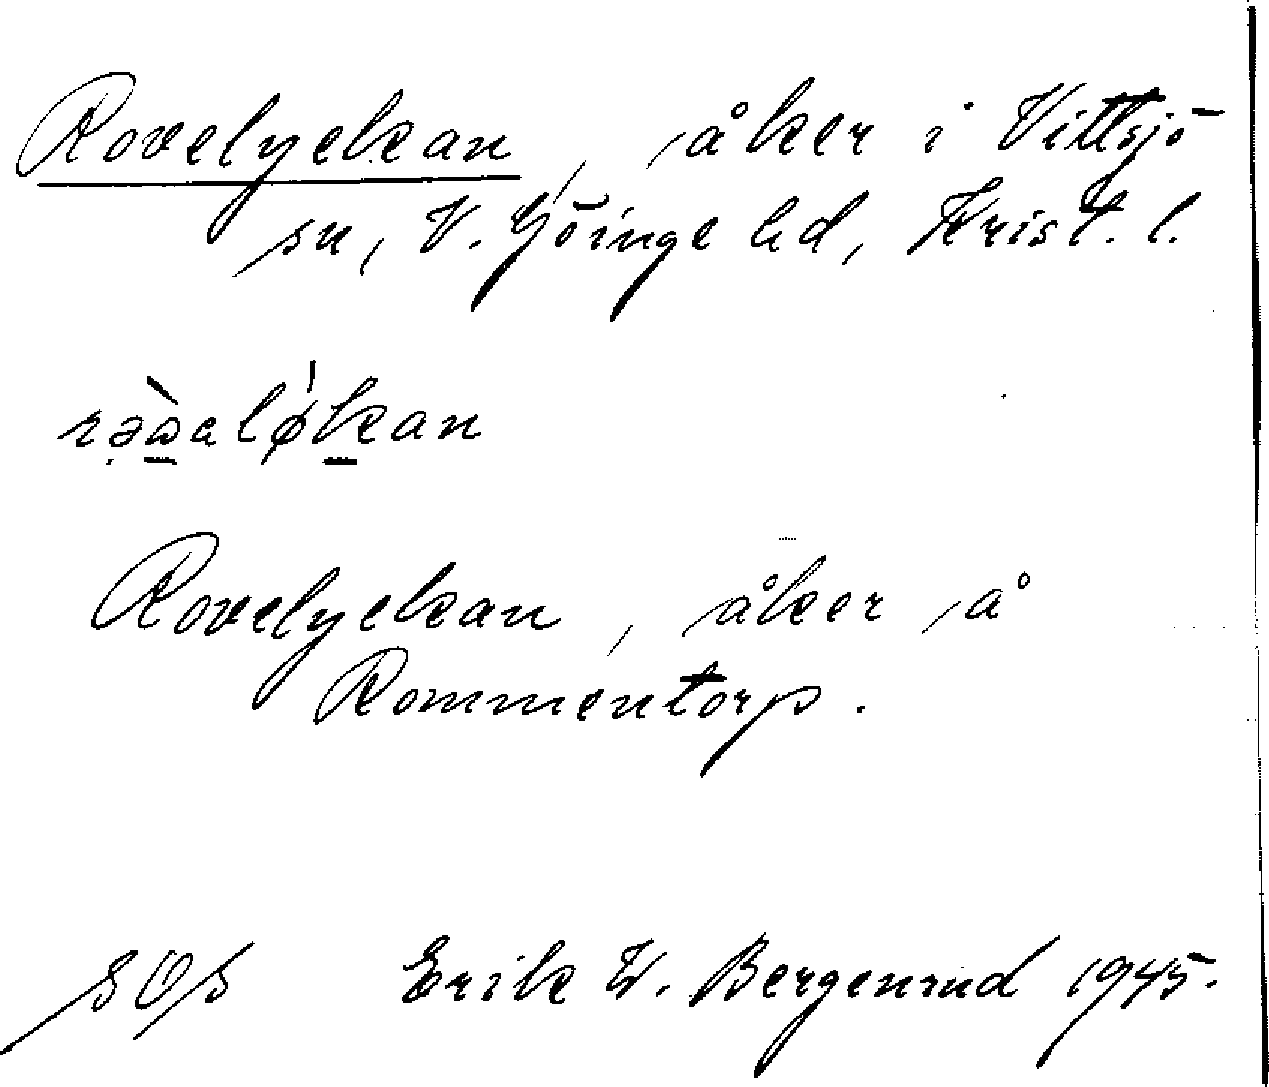 Rovelyckan, åker i Vittsjö
sn, V. Göinge hd, Krist. l.
Rovelyckan, åker å
Rommentorp.
SOS Erik W. Bergenrud 1945.